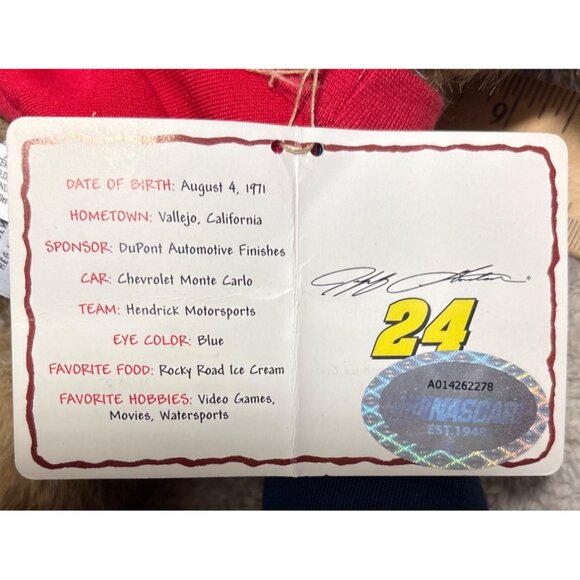 DATE OF BIRTH: August 4, 1971
HOMETOWN: Vallejo, California
SPONSOR: DuPont Automotive Finishes
CAR: Chevrolet Monte Carlo
TEAM: Hendrick Motorsports
EYE COLOR: Blue
FAVORITE FOOD: Rocky Road Ice Cream
FAVORITE HOBBIES: Video Games,
Movies, Watersports
Jeff Gordon
24
A014262278
NASCAR
EST. 1948
9